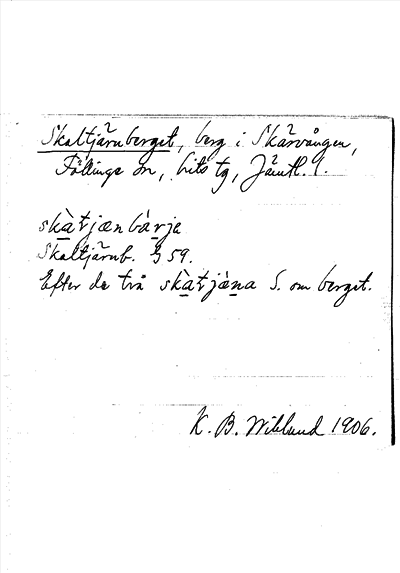 Skaltjärnberget, berg i Skärvången,
Föllinge sn, Lits tg, Jämtl. l.
skàtjænbàrje
Skaltjärnb. G 59.
Efter de två skàtjæ̀na S. om berget.
K. B. Wiklund 1906.